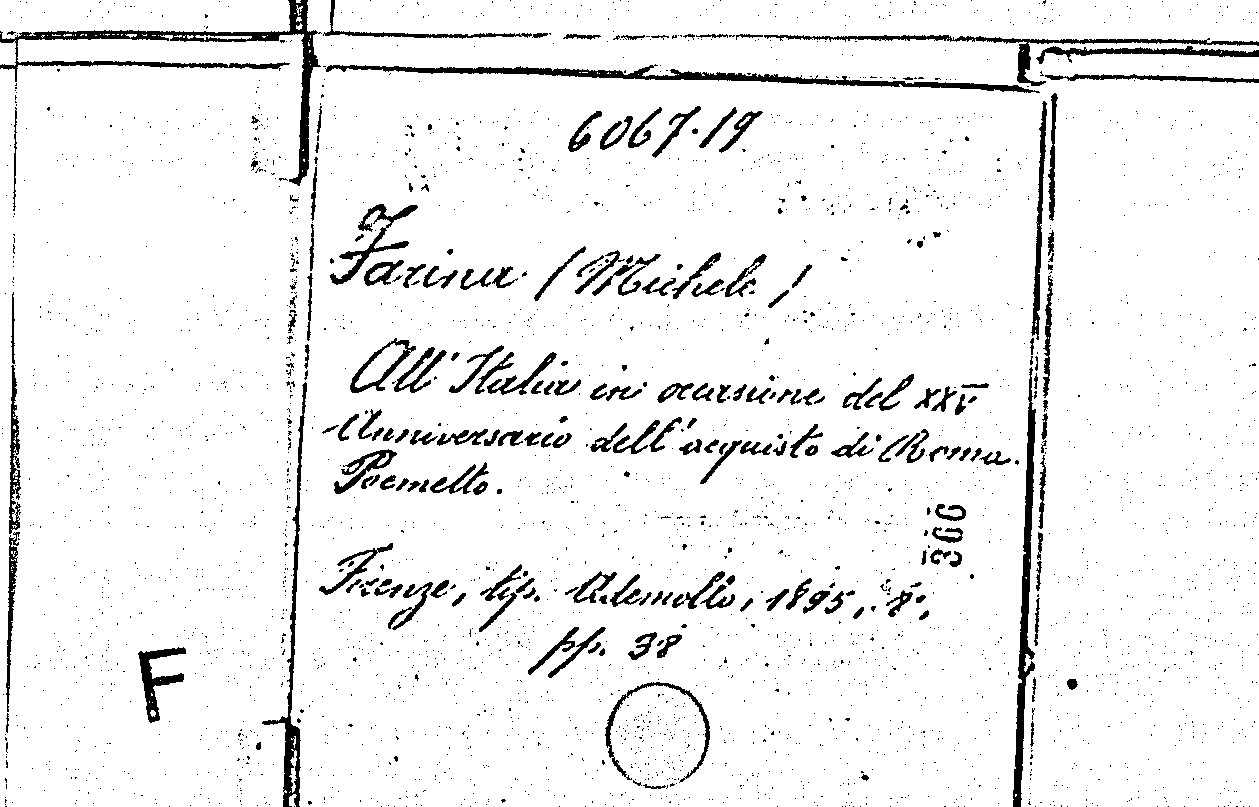 6067.19
Farina (Michele)
All' Italia in occasione del XXV
Anniversario dell'acquisto di Roma.
Poemetto.
366
Firenze, tip. Ademollo, 1895, 8°,
pp. 38
F